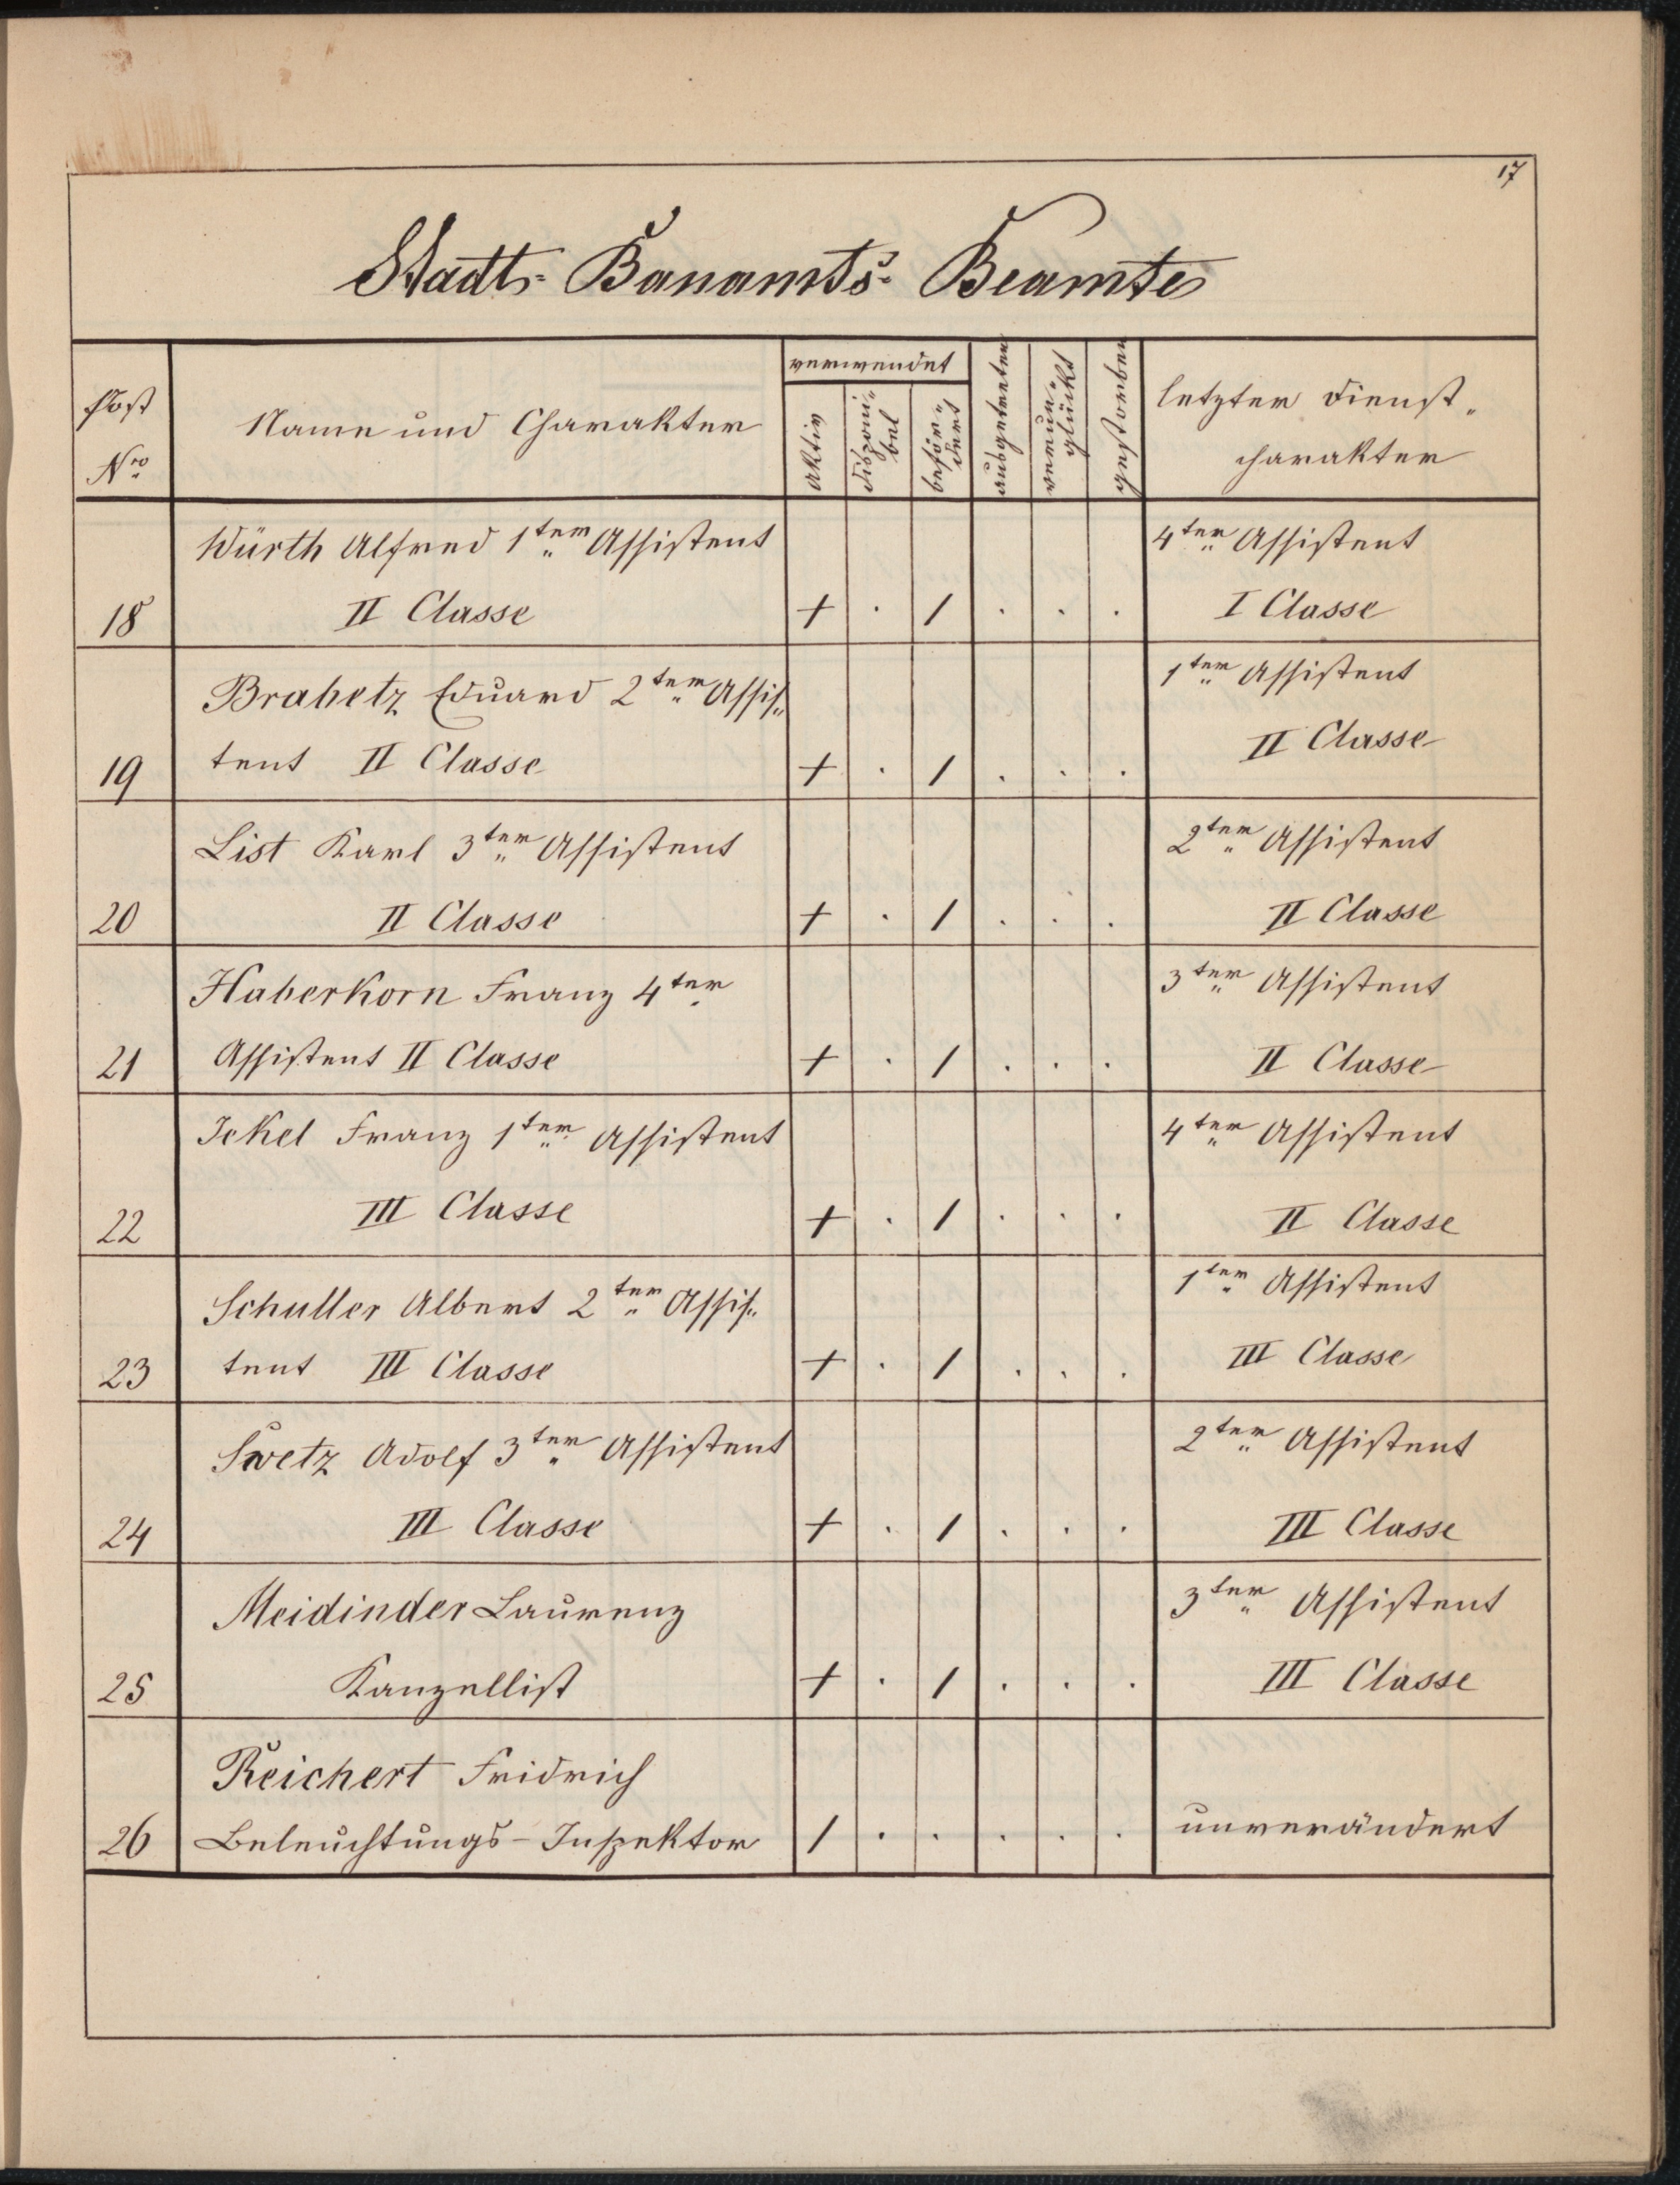 17
Stadt-Bauamts-Beamte
Post
Nro
Name und Charakter
verwendet
aktiv
disponi-
bel
beför-
dert
ausgetreten
verun-
glückt
gestorben
letzter Dienst-
charakter
Würth Alfred 1ter Assistent
18 II Classe + . / . . .
4ter Assistent
I Classe
Brabetz Eduard 2ter Assis-
19 tent II Classe + . / . . .
1ter Assistent
II Classe
List Karl 3ter Assistent
20 II Classe + . / . . .
2ter Assistent
II Classe
Haberkorn Franz 4ter
21 Assistent II Classe + . / . . .
3ter Assistent
II Classe
Ickel Franz 1ter Assistent
22 III Classe + . / . . .
4ter Assistent
II Classe
Schuller Albert 2ter Assis-
23 tent III Classe + . / . . .
1ter Assistent
III Classe
Swetz Adolf 3ter Assistent
24 III Classe + . / . . .
2ter Assistent
III Classe
Meidinder Laurenz
25 Kanzellist + . / . . .
3ter Assistent
III Classe
Reichert Fridrich
26 Beleuchtungs-Inspektor / . . . . . unverändert